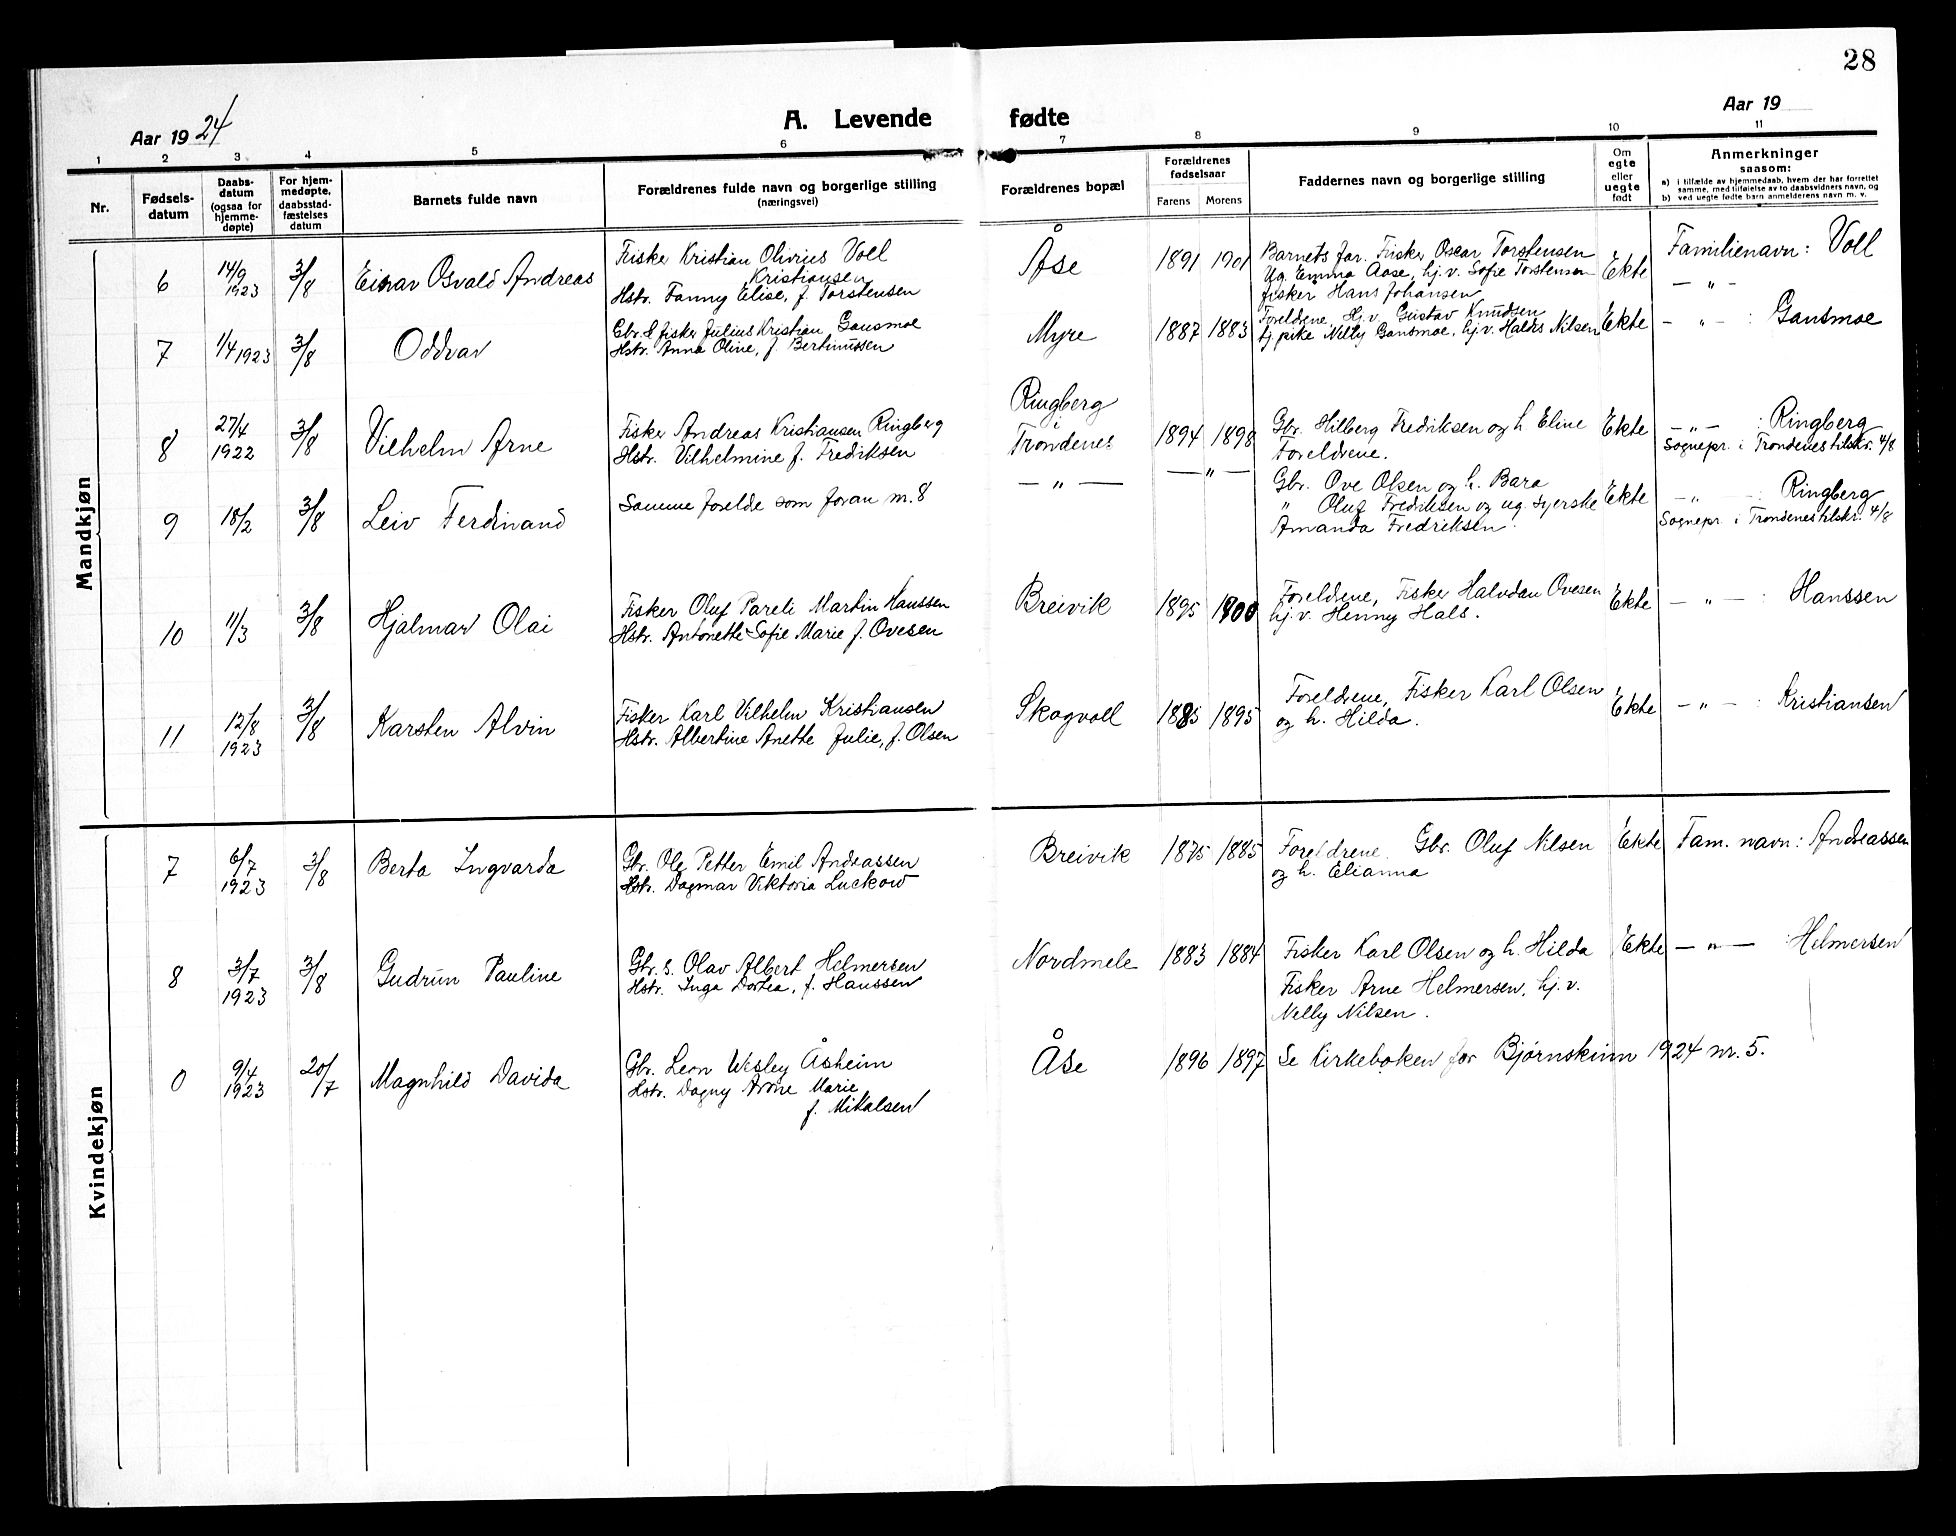 28
Aar 1924
A. Levende fødte
Aar 19
1 2 3 4 5 6 7 8 9 10 11
Nr.
Fødsels-
datum
Daabs-
datum
(ogsaa for
hjemme-
døpte)
For hjem-
medøpte,
daabsstad-
fæstelses
datum
Barnets fulde navn
Forældrenes fulde navn og borgerlige stilling
(næringsvei)
Forældrenes bopæl
Forældrenes
fødselsaar
Farens Morens
Faddernes navn og borgerlige stilling
Om
egte
eller
uegte
født
Anmerkninger
saasom:
a) i tilfælde av hjemmedaab, hvem der har forrettet
samme, med tilføielse av to daabsvidners navn, og
b) ved uegte fødte barn anmelderens navn m. v.
Mandkjøn
6 14/9 1923 3/8 Einar Osvald Andreas
Fisker Kristian Olivius Voll
Kristiansen
Hstr. Fanny Elise, f. Torstensen
Åse 1891 1901
Barnets far. Fisker Oscar Torstensen
Ug. Emma Aase, hj.v. Sofie Torstensen
fisker Hans Johansen
Ekte
Familienavn: Voll
— „ —
7 1/4 1923 3/8 Oddvar
Gbr. & fisker Julius Kristian Gansmoe
Hstr. Anna Oline, f. Bertinussen
Myre 1887 1883
Foreldrene, Hj.v. Gustav Knudsen
tj.pike Nelly Gansmoe, hj.v. Haldis Nilsen
Ekte — „ — : Gansmoe
8 27/4 1922 3/8 Vilhelm Arne
Fisker Andreas Kristiansen Ringberg
Hstr. Vilhelmine f. Fredriksen
Ringberg
i
Trondenes
1894 1898
Gbr. Hilberg Fredriksen og h. Eline
Foreldrene.
Ekte — „ — : Ringberg
Sognepr. i Trondenes tilskr. 4/8
9 18/2 3/8 Leiv Ferdinand
Samme forelde som foran nr. 8
— „ — — „ —
Gbr. Ove Olsen og h. Bara
„ Oluf Fredriksen og ug. syerske
Amanda Fredriksen.
Ekte — „ — : Ringberg
Sognepr. i Trondenes tilskr. 4/8
10 11/3 3/8 Hjalmar Olai
Fisker Oluf Pareli Martin Hanssen
Hstr. Antonette Sofie Marie f. Ovesen
Breivik 1895 1900
Foreldrene, Fisker Halvdan Ovesen
hj.v. Henny Hals.
Ekte — „ — : Hanssen
11 12/8 1923 3/8 Karsten Alvin
Fisker Karl Vilhelm Kristiansen
Hstr. Albertine Anette Julie, f. Olsen
Skogvoll 1885 1895
Foreldrene, Fisker Karl Olsen
og h. Hilda.
Ekte — „ — : Kristiansen
Kvindekjøn
7 6/7 1923 3/8 Berta Ingvarda
Gbr. Ole Petter Emil Andreassen
Hstr. Dagmar Viktoria Luckow
Breivik 1875 1885
Foreldrene. Gbr. Oluf Nilsen
og h. Elianna
Ekte Fam. navn: Andreassen
8 3/7 1923 3/8 Gudrun Pauline
Gbr. s. Olav Albert Helmersen
Hstr. Inga Dortea, f. Hanssen
Nordmele 1883 1884
Fisker Karl Olsen og h. Hilda
Fisker Arne Helmersen, hj.v.
Nelly Nilsen.
Ekte — „ — : Helmersen
0 9/4 1923 20/7 Magnhild Davida
Gbr. Leon Wesley Åsheim
Hstr. Dagny Anne Marie
f. Mikalsen
Åse 1896 1897 Se Kirkeboken for Bjørnskinn 1924 nr. 5.